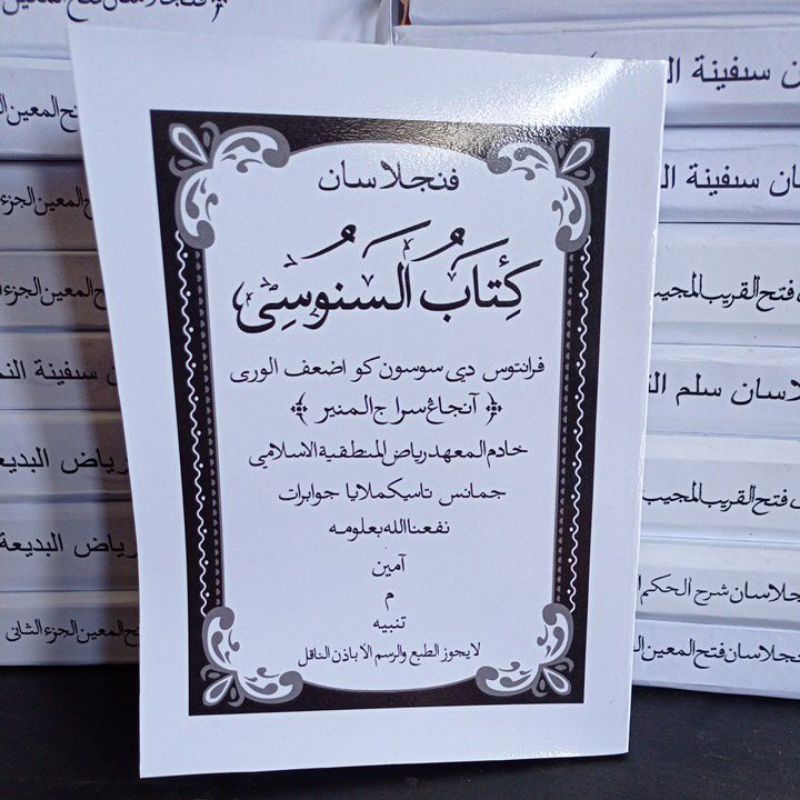 فنجلاسان
كِتَابُ السَّنُوْسِيْ
فرانتوس دي سوسون كو اضعف الورى
﴿ آنجاڠ سراج المنير ﴾
خادم المعهد رياض المنطقية الاسلامي
جمانس تاسيكملايا جوابرات
نفعنا الله بعلومه
آمين
م
تنبيه
لا يجوز الطبع والرسم الا باذن الناقل
المعين
المعين الجزء
المعين الجزء
سفينة
رياض البديعة
رياض البديعة
فتح المعين الجزء الثانى
سفينة
سفينة
فتح القريب المجيب
سلم
فتح القريب المجيب
شرح الحكم
فتح المعين